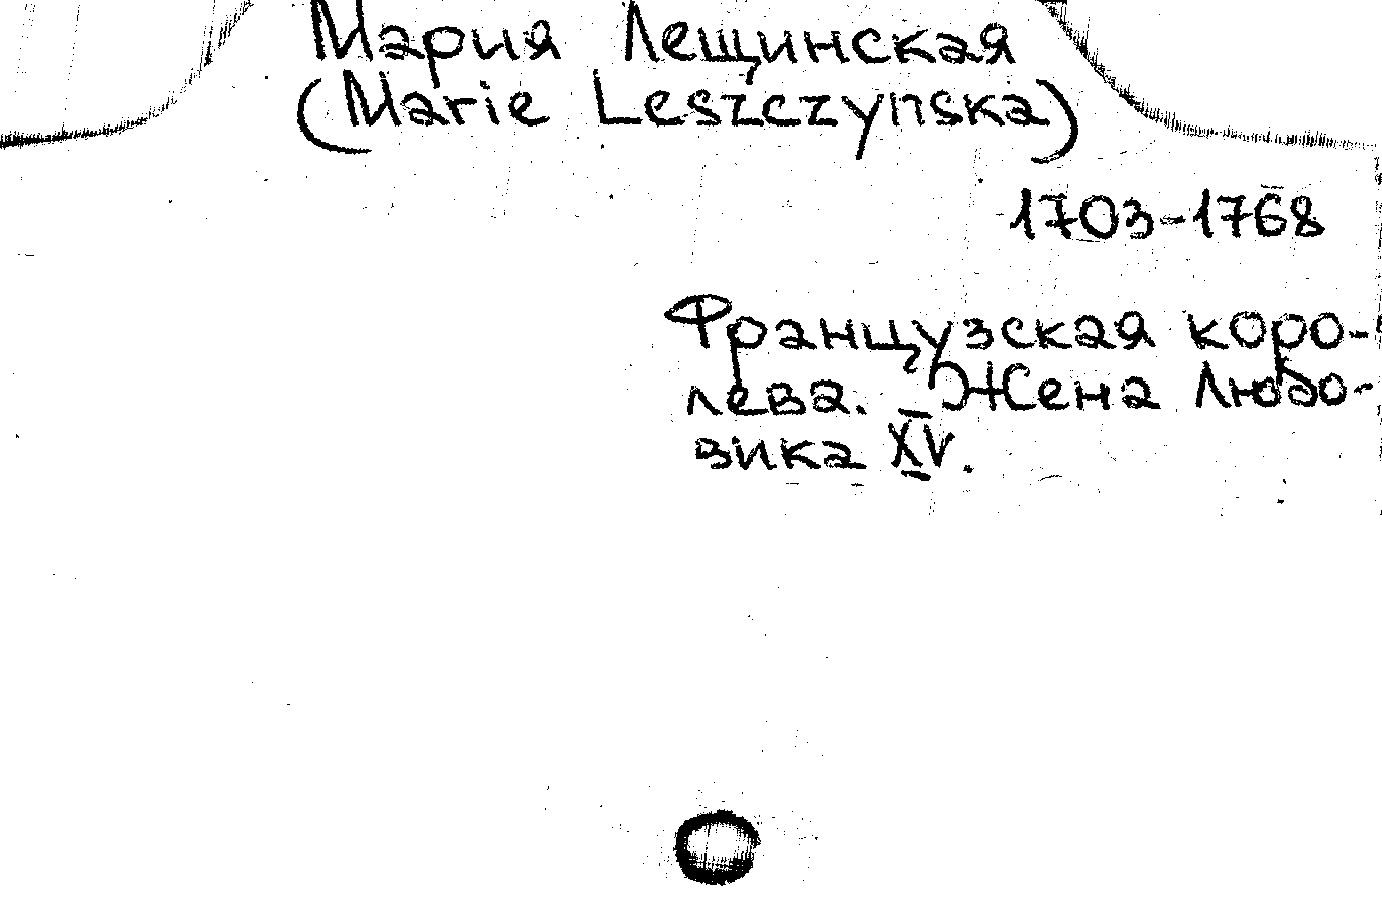 Мария Лещинская
(Marie Leszczynska)
1703-1768
Французская коро-
лева. Жена Людо-
вика XV.